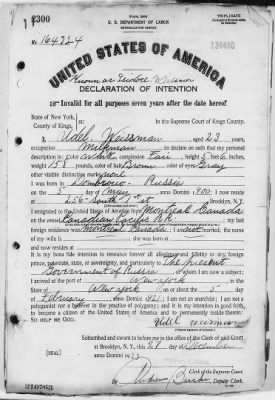 2300
FORM 2203
U. S. DEPARTMENT OF LABOR
NATURALIZATION SERVICE
TRIPLICATE
No. 164224
138400
UNITED STATES OF AMERICA
Known as Isidore Weissman
DECLARATION OF INTENTION
Invalid for all purposes seven years after the date hereof
State of New York,
County of Kings, ss:
In the Supreme Court of Kings County.
I, Udel Weissman aged 23 years,
occupation Milkman, do declare on oath that my personal
description is: Color White, complexion Fair, height 5 feet inches,
weight 158 pounds, color of hair Brown, color of eyes Gray
other visible distinctive marks none
I was born in Russia
on the 5 day of May, anno Domini 1900; I now reside
at 256 South 7th st Brooklyn, N. Y.
I emigrated to the United States of America from Montreal Canada
on the vessel Canadian Pacific RR; my last
foreign residence was Montreal Canada; I am not married; the name
of my wife is ; she was born
at and now resides
at
It is my bona fide intention to renounce forever all allegiance and fidelity to any foreign
prince, potentate, state, or sovereignty, and particularly to The present
Government of Russia, of whom I am now a subject;
I arrived at the port of New York, in the
State of New York, on or about the 5 day
of February, anno Domini 1921; I am not an anarchist; I am not a
polygamist nor a believer in the practice of polygamy; and it is my intention in good faith,
to become a citizen of the United States of America and to permanently reside therein:
SO HELP ME GOD.
Udel Weisman
Subscribed and sworn to before me in the office of the Clerk of said Court
at Brooklyn, N. Y., this 26 day of December
anno Domini 1923
[SEAL]
Clerk of the Supreme Court.
By Deputy Clerk.
210263